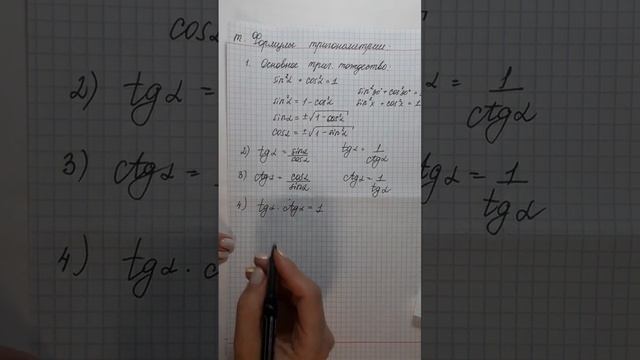 т. Формулы тригонометрии.
1. Основное триг. тождество.
sin²α + cos²α = 1
sin²30° + cos²30° = 1
sin²α = 1 - cos²α sin²x + cos²x = 1
sinα = ±√1 - cos²α
cosα = ±√1 - sin²α
2) tgα = sinα/cosα tgα = 1/ctgα
3) ctgα = cosα/sinα ctgα = 1/tgα
4) tgα · ctgα = 1